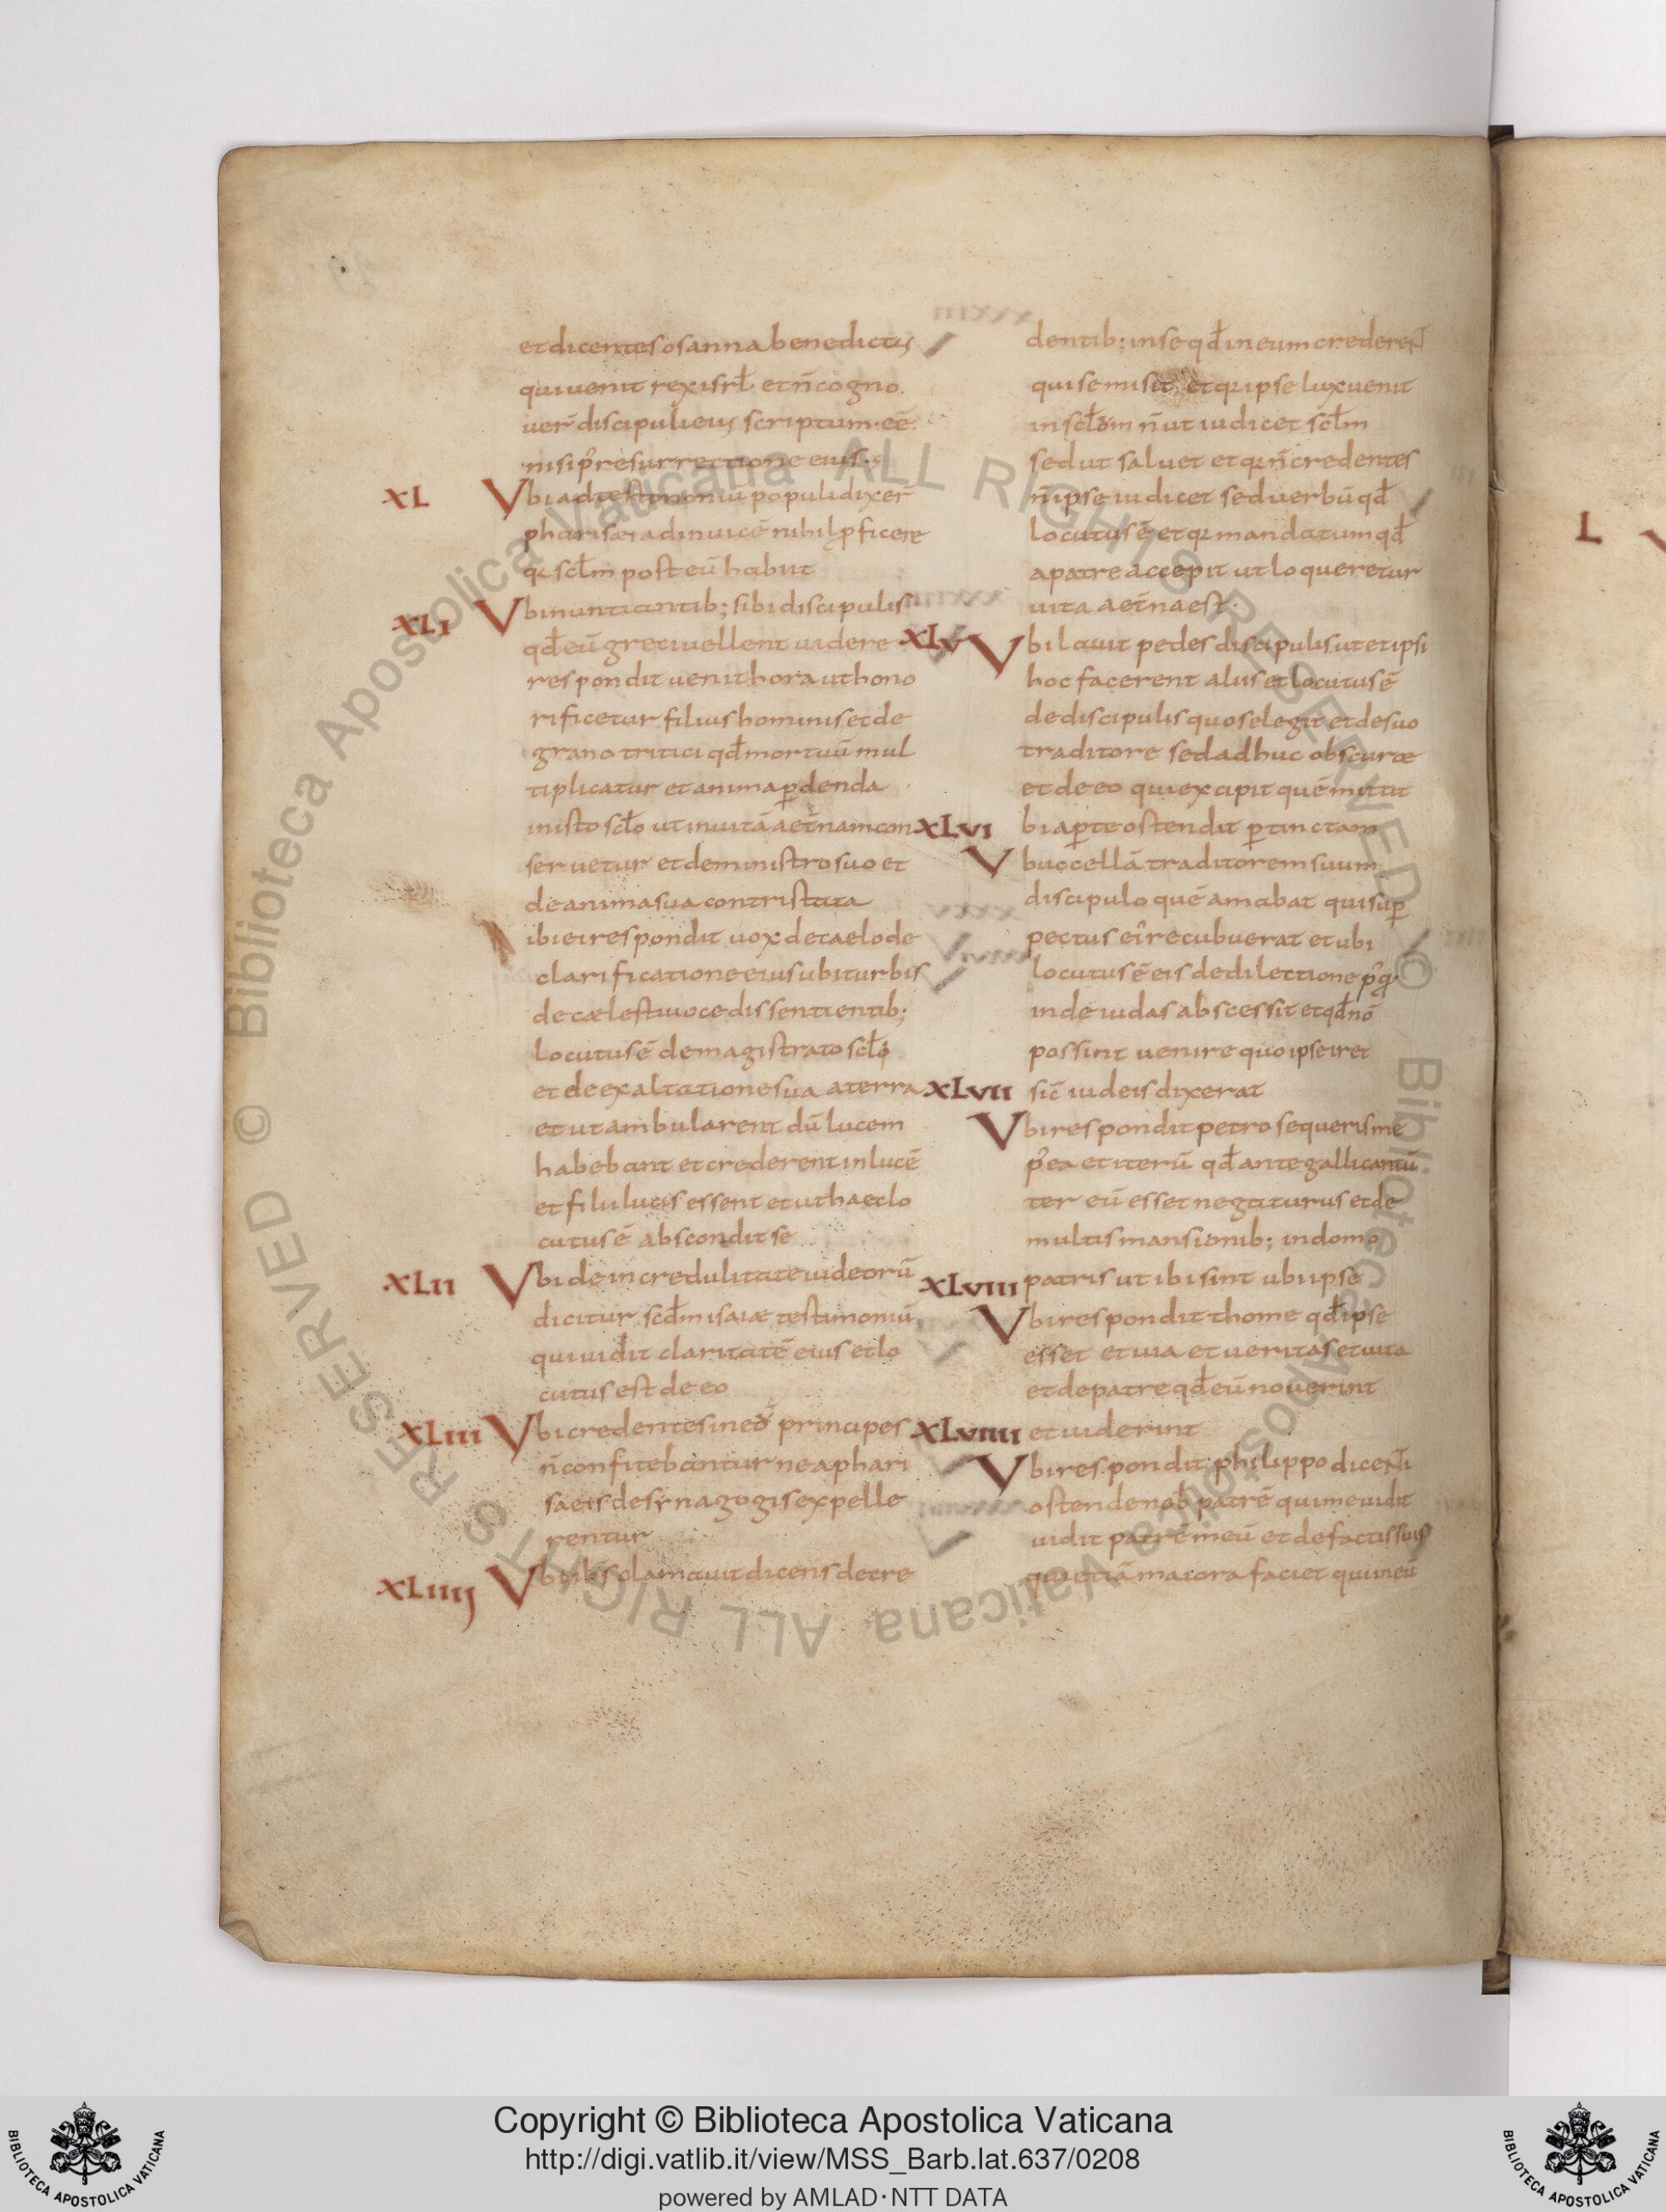 et dicentes osanna benedictus
qui uenit rex isrł et n̄ cogno
uer̄ discipuli eius scriptum eē
nisi p̾ resurrectione eius
XL Vbi ad testimoniū populi dixer̄
pharisaei ad inuicē nihil proficere
q; scłm post eū habiit
XLI Vbi nuntiantib; sibi discipulis
qđ eū greci uellent uidere
respondit uenit hora ut hono
rificetur filius hominis et de
grano tritici qđ mortuū mul
tiplicatur et anima ꝑdenda
in isto scło ut in uitā aet̄nam con
seruetur et de ministro suo et
de anima sua contristata
ibi ei respondit uox de caelo de
clarificatione eius ubi turbis
de cælesti uoce dissentientib;
locutus ē de magistrato scło
et de exaltatione sua a terra
et ut ambularent dū lucem
habebant et crederent in lucē
et filii lucis essent et ut haec lo
cutus ē abscondit se
XLII Vbi de incredulitate iudeorū
dicitur scđm isaiæ testimoniū
qui uidit claritatē eius et lo
cutus est de eo
XLIII Vbi credentes in eo principes
n̄ confitebantur ne a phari
saeis de synagogis expelle
rentur
XLIIII Vbi ihs̄ clamauit dicens de cre
dentib; in se qđ in eum crederent
qui se misit et q; ipse lux uenit
in scłom n̄ ut iudicet scłm
sed ut saluet et q; n̄ credentes
n̄ ipse iudicet sed uerbū qđ
locutus ē et q; mandatum qđ
a patre accepit ut loqueretur
uita aet̄na est
XLV Vbi lauit pedes discipulis ut et ipsi
hoc facerent aliis et locutus ē
de discipulis quos elegit et de suo
traditore sed adhuc obscuræ
et de eo qui excipit quē mittit
XLVI Vbi aꝑte ostendit ꝑ tinctam
buccellā traditorem suum
discipulo quē amabat qui suꝑ
pectus ei᾽ recubuerat et ubi
locutus ē eis de dilectione p̾q̄
inde iudas abscessit et qđ nō
possint uenire quo ipse iret
sic̄ iudeis dixerat
XLVII Vbi respondit petro sequeris me
p̾ea et iterū qđ ante galli cantū
ter eū esset negaturus et de
multis mansionib; in domo
patris ut ibi sint ubi ipse
XLVIII Vbi respondit thome qđ ipse
esset et uia et ueritas et uita
et de patre qđ eū nouerint
et uiderint
XLVIIII Vbi respondit philippo dicenti
ostende nob̄ patrē qui me uidit
uidit patrē meū et de factis suis
qui etiā maiora faciet qui in eū
L
Copyright © Biblioteca Apostolica Vaticana
http://digi.vatlib.it/view/MSS_Barb.lat.637/0208
powered by AMLAD·NTT DATA
BIBLIOTECA APOSTOLICA VATICANA
BIBLIOTECA APOSTOLICA VATICANA
© Biblioteca Apostolica Vaticana ALL RIGHTS RESERVED © Biblioteca Apostolica Vaticana ALL RIGHTS RESERVED